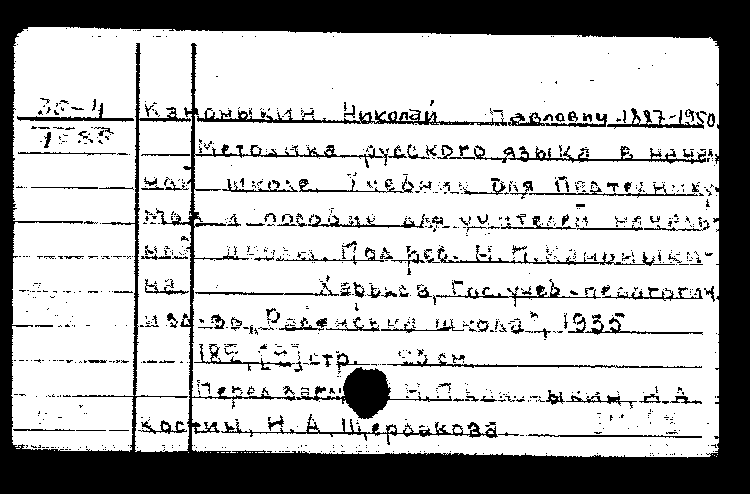 35-4
Каноныкин Николай Павлович 1887-1950.
1583
Методика русского языка в началь
ной школе. Учебник для Педтехнику
мов и пособие для учителей началь
ной школы. Под ред. Н.П.Каноныки-
на. Харьков, Гос.учеб.-педагогич.
изд-во „Радянська школа", 1935
182, [2] стр. 23 см.
Перед загл. Н.П.Каноныкин, Н.А.
Костин, Н.А.Щербакова.